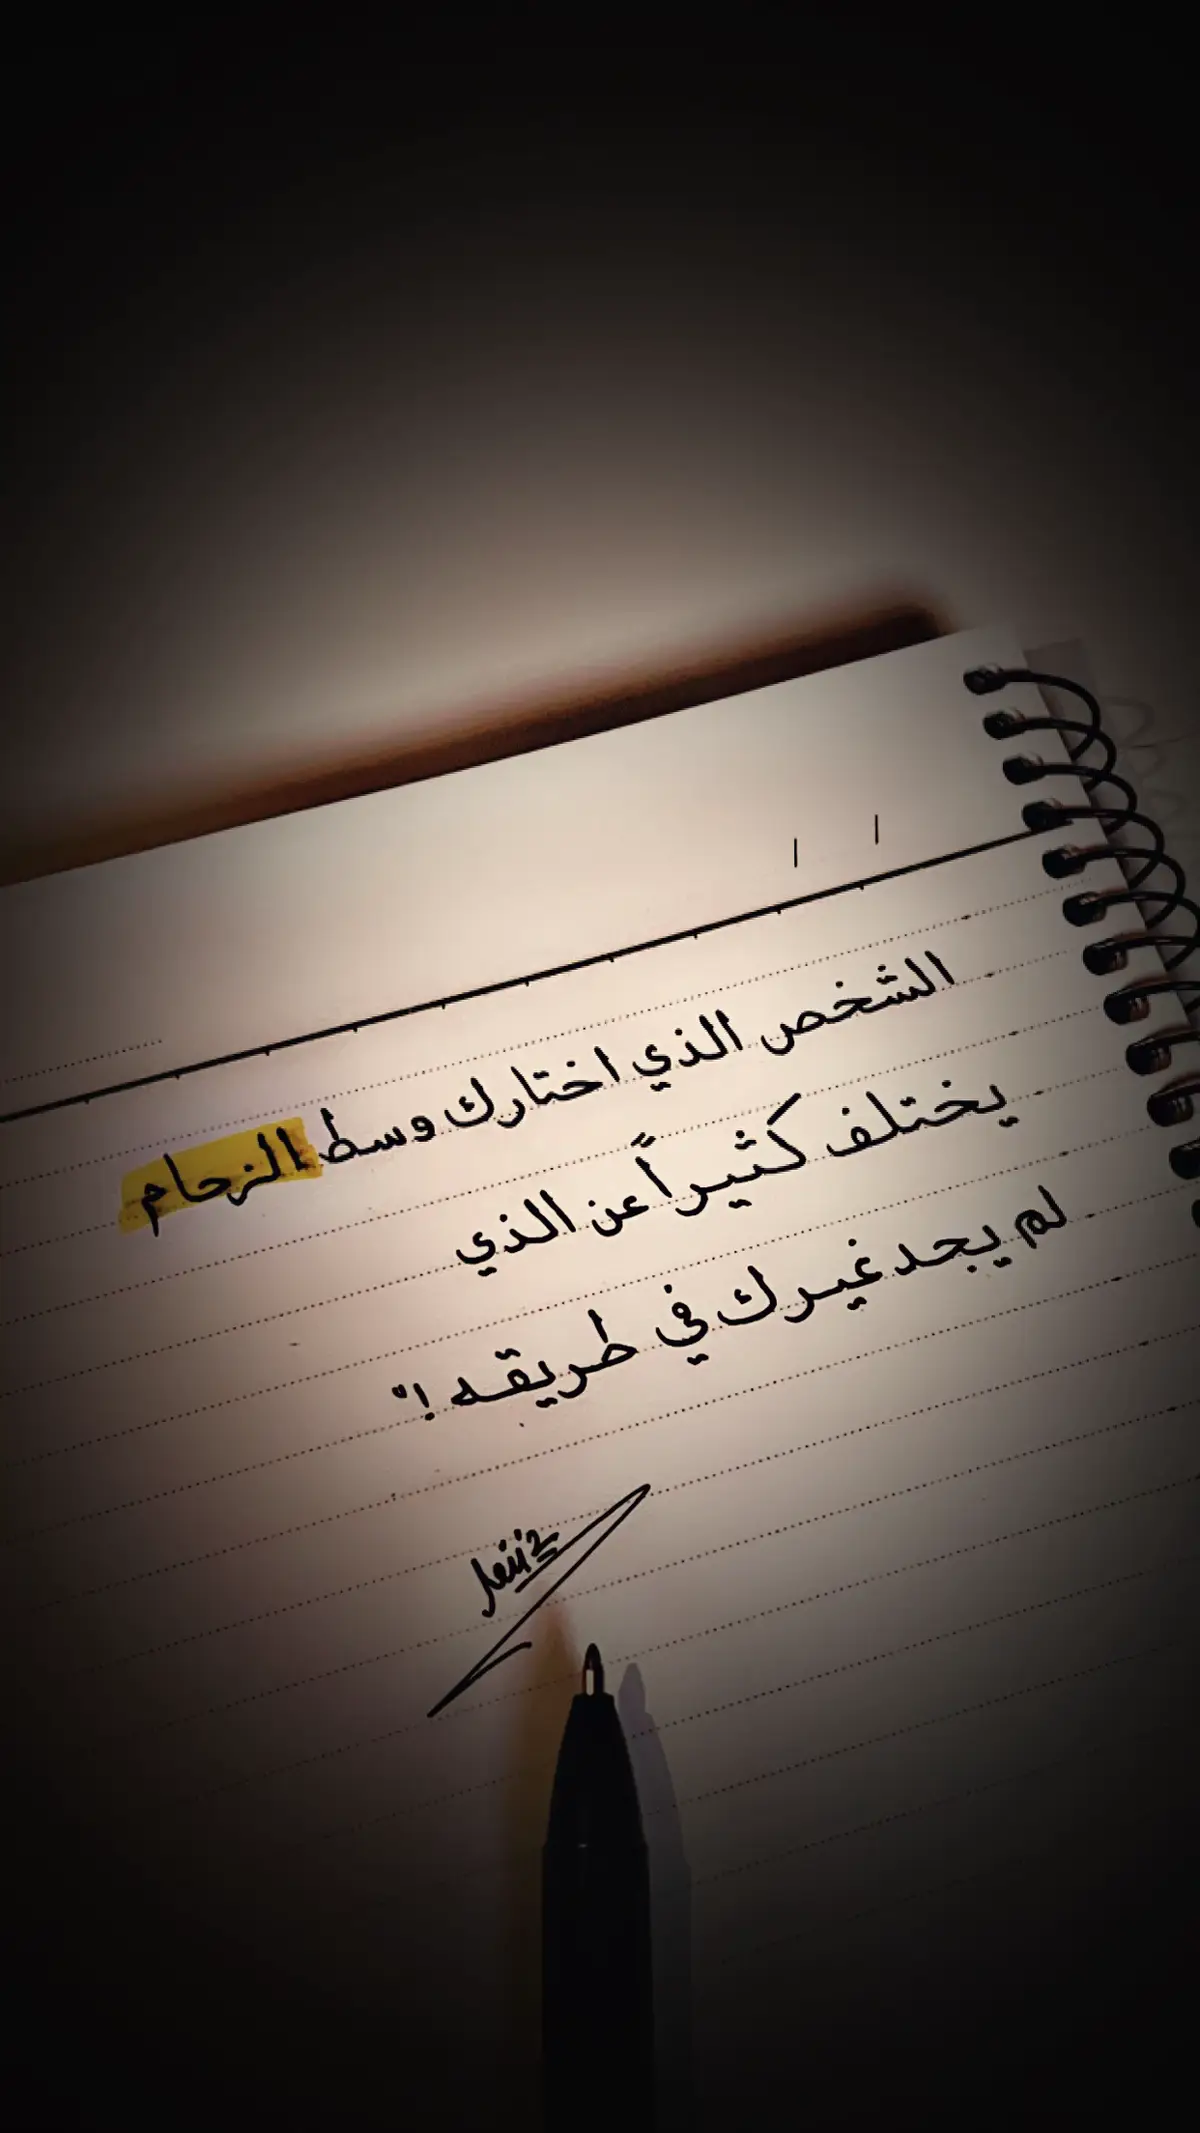 الشخص الذي اختارك وسط الزحام
يختلف كثيراً عن الذي
لم يجد غيرك في طريقه !"